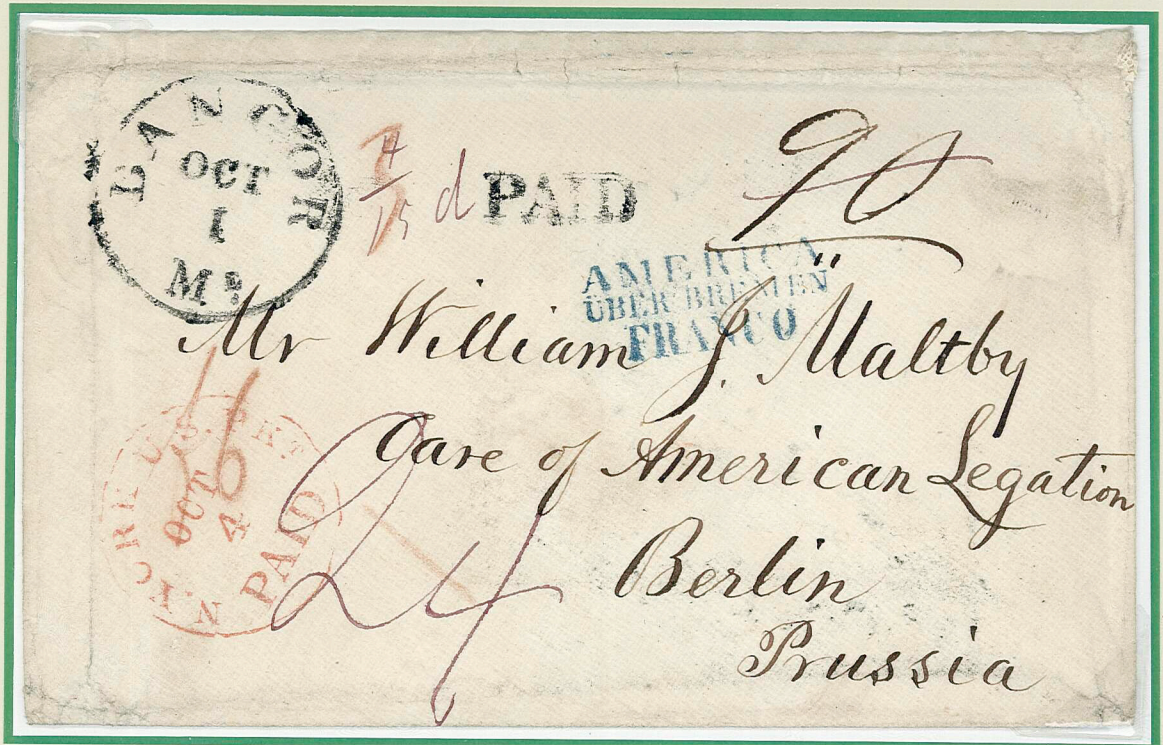 BANGOR
OCT
1
Me
PAID
90
AMERICA
ÜBER BREMEN
FRANCO
Mr William J. Maltby
Care of American Legation
Berlin
Prussia
U.S. PKT
OCT
4
PAID
24